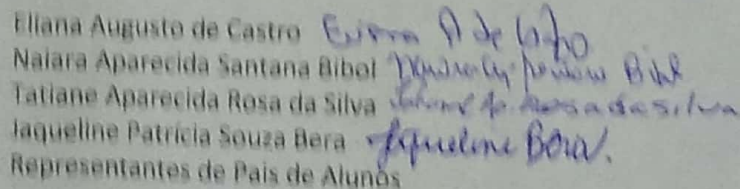 Eliana Augusto de Castro
Naiara Aparecida Santana Bibol
Tatiane Aparecida Rosa da Silva Ap. Rosa da silva
Jaqueline Patrícia Souza Bera Jaqueline Bera.
Representantes de Pais de Alunos